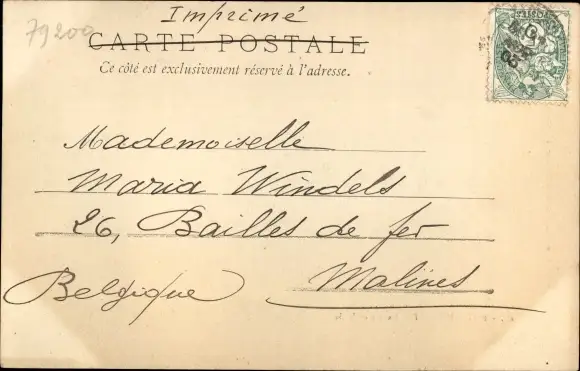 79200
Imprimé
CARTE POSTALE
Ce côté est exclusivement réservé à l'adresse.
Mademoiselle
Maria Windels
26, Bailles de fer
Malines
Belgique